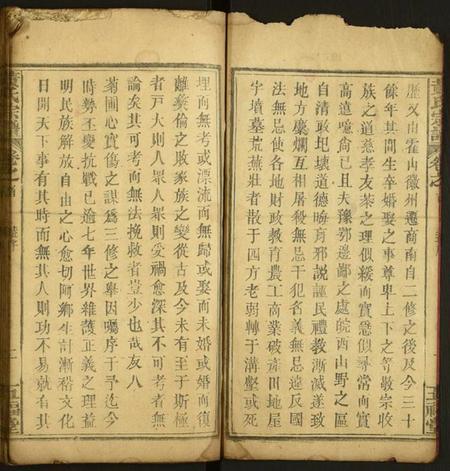 歷又由霍山徽州遷商南自二修之後及今三十
餘年其間生卒婚娶之事尊卑上下之等敬宗收
族之道慈孝友恭之理似緩而實急似尋常而實
高遠噫尚已且夫豫鄂邊鄙之處皖西山野之區
自清敢圯壞道德晦育邪說誣民禮教漸滅遂致
地方糜爛互相屠殺無忌干犯名義無忌違反國
法無忌使各地財政教育農工商業破產田地屋
宇墳墓荒蕪壯者散于四方老弱轉于溝壑或死
埋而無考或漂流而無歸或娶而未婚或婚而復
離彝倫之敗家族之變從古及今未有至于斯極
者戸大則人眾人眾則受禍愈深其不可考者無
論矣其可考而無法挽救者豈少也哉友八
菊圃心實傷之謀為三修之舉因囑序于予迄今
時勢丕變抗戰已逾七年世界維護正義之理益
明民族解放自由之心愈切阿鄉生計漸裕文化
日開天下事有其時而無其人則功不易就有其
黃氏宗譜 卷之首
五福堂